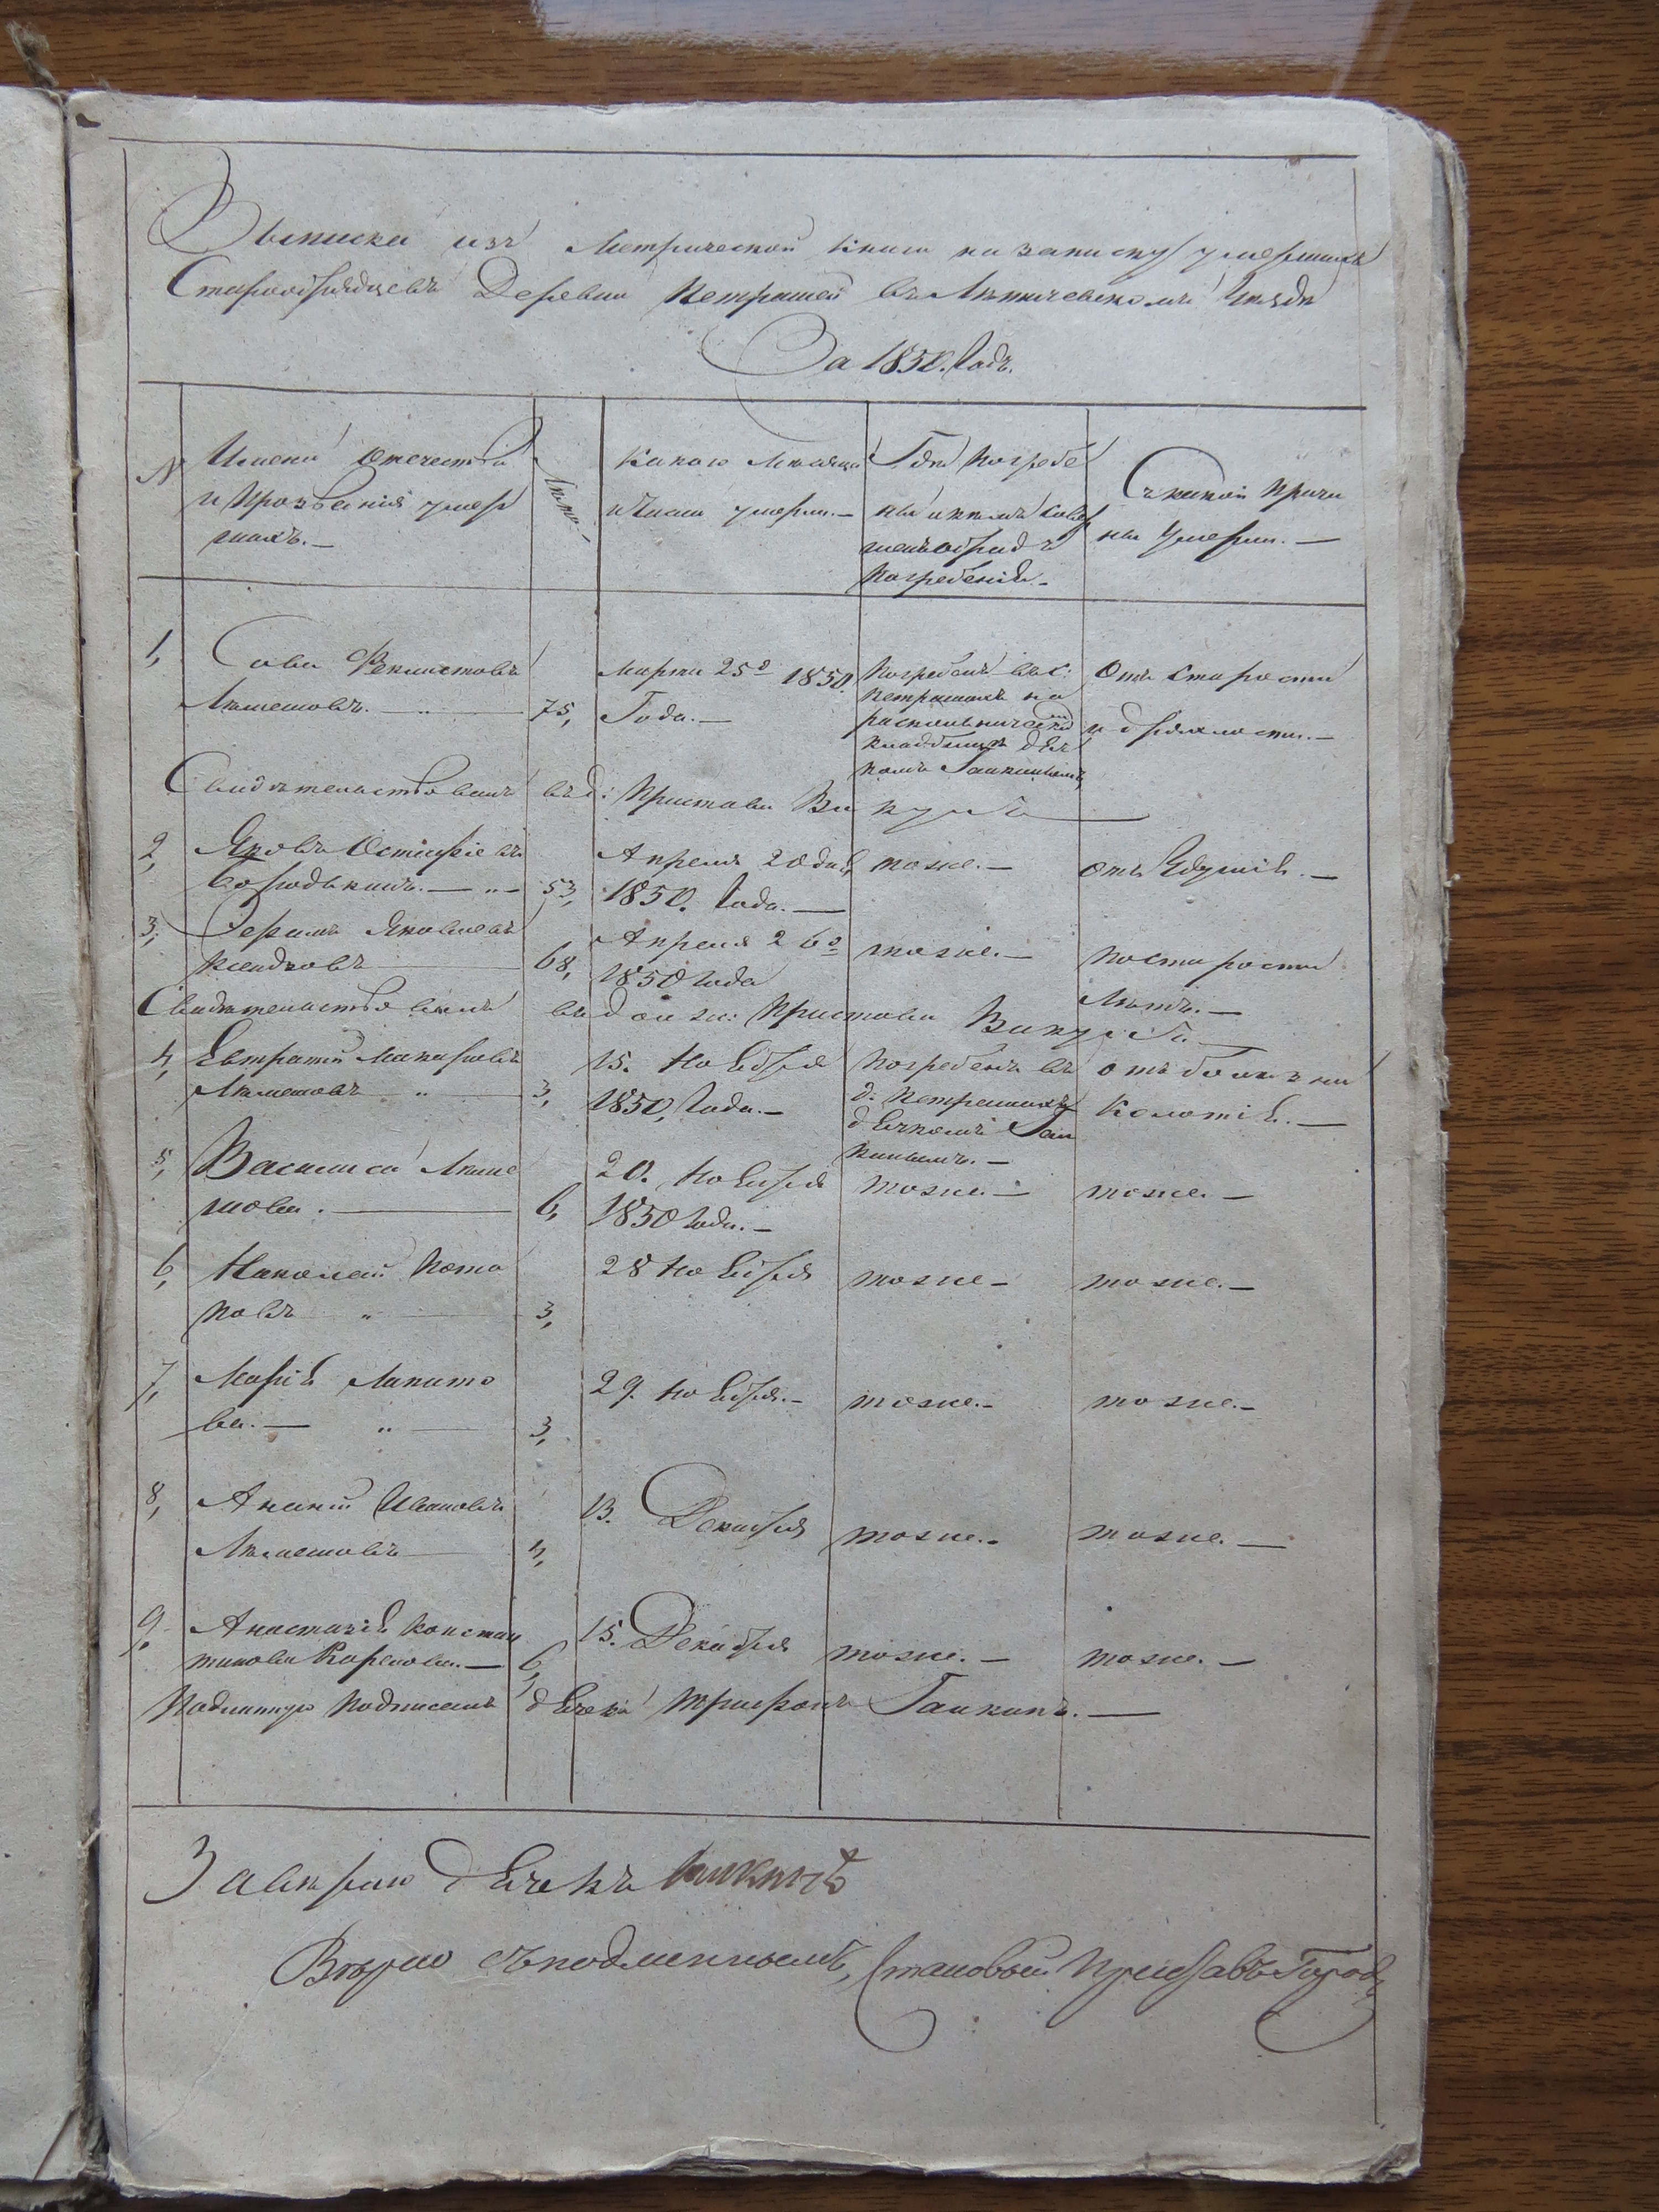 Выписка изъ Метрической книги на записку умершихъ
Старообрядцевъ Деревни Петрашей въ Летичевскомъ Уездѣ
За 1850. Годъ.
№
Имена Отечества
и Прозвенія умер
шихъ. —
Лета. —
Какого Месяца
и Числа умерли. —
Где Погребе
ны и кемъ Совер
шенъ обрядъ
Погребенія. —
Съ какой Причи
ны Умерли. —
1, Сава Феклистовъ
Лемешовъ. — „ — 75,
Марта 25го 1850.
Года. —
Погребенъ въ С:
Петрашахъ на
раскольническомъ
кладбище дья
комъ Галкинымъ,
Отъ Старости
и дряхлости. —
Свидетельствовалъ въ д: Пристава Викулъ —
2, Яковъ
Бородкинъ. — „ — 53,
Апреля 20 дня
1850. Года. —
тоже. —
отъ Удушія. —
3, Яковлевъ
68,
Апреля 26го
1850 Года
тоже. —
По старости
Летъ. —
Свидетельствовалъ въ должн: Пристава Викулъ. —
4, Евтратій Макаровъ
Лемешовъ „ — 3,
15. Ноября
1850, Года. —
Погребенъ въ
д: Петрашахъ
дьячкомъ Гал
кинымъ. —
отъ болезни
Колотія. —
5, Василиса Леме
шова. — 6,
20. Ноября
1850 Года. —
тоже —
тоже. —
6, Николай Пота
повъ „ — 3,
28 Ноября
тоже —
тоже. —
7, Марія Лапато
ва. — „ — 3,
29. Ноября. —
тоже. —
тоже. —
8, Ананій Ивановъ
Лемешовъ — 4,
13. Декабря
тоже. —
тоже. —
9, Анастасія Констан
тинова — 6,
15. Декабря
тоже. —
тоже. —
Подлинную Подписалъ дьячекъ Трифонъ Галкинъ. —
Заверяю Дьячекъ Галкинъ
Верно съ подлиннымъ, Становый Приставъ